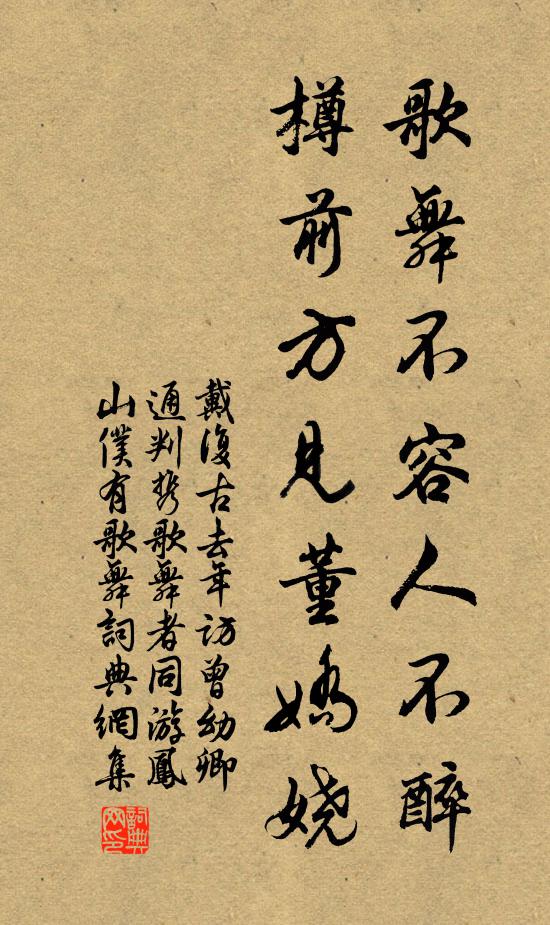 歌舞不容人不醉
樽前方見董嬌嬈
戴復古去年訪曾幼卿
通判携歌舞者同游鳳
山僕有歌舞詞典網集
詞典网印